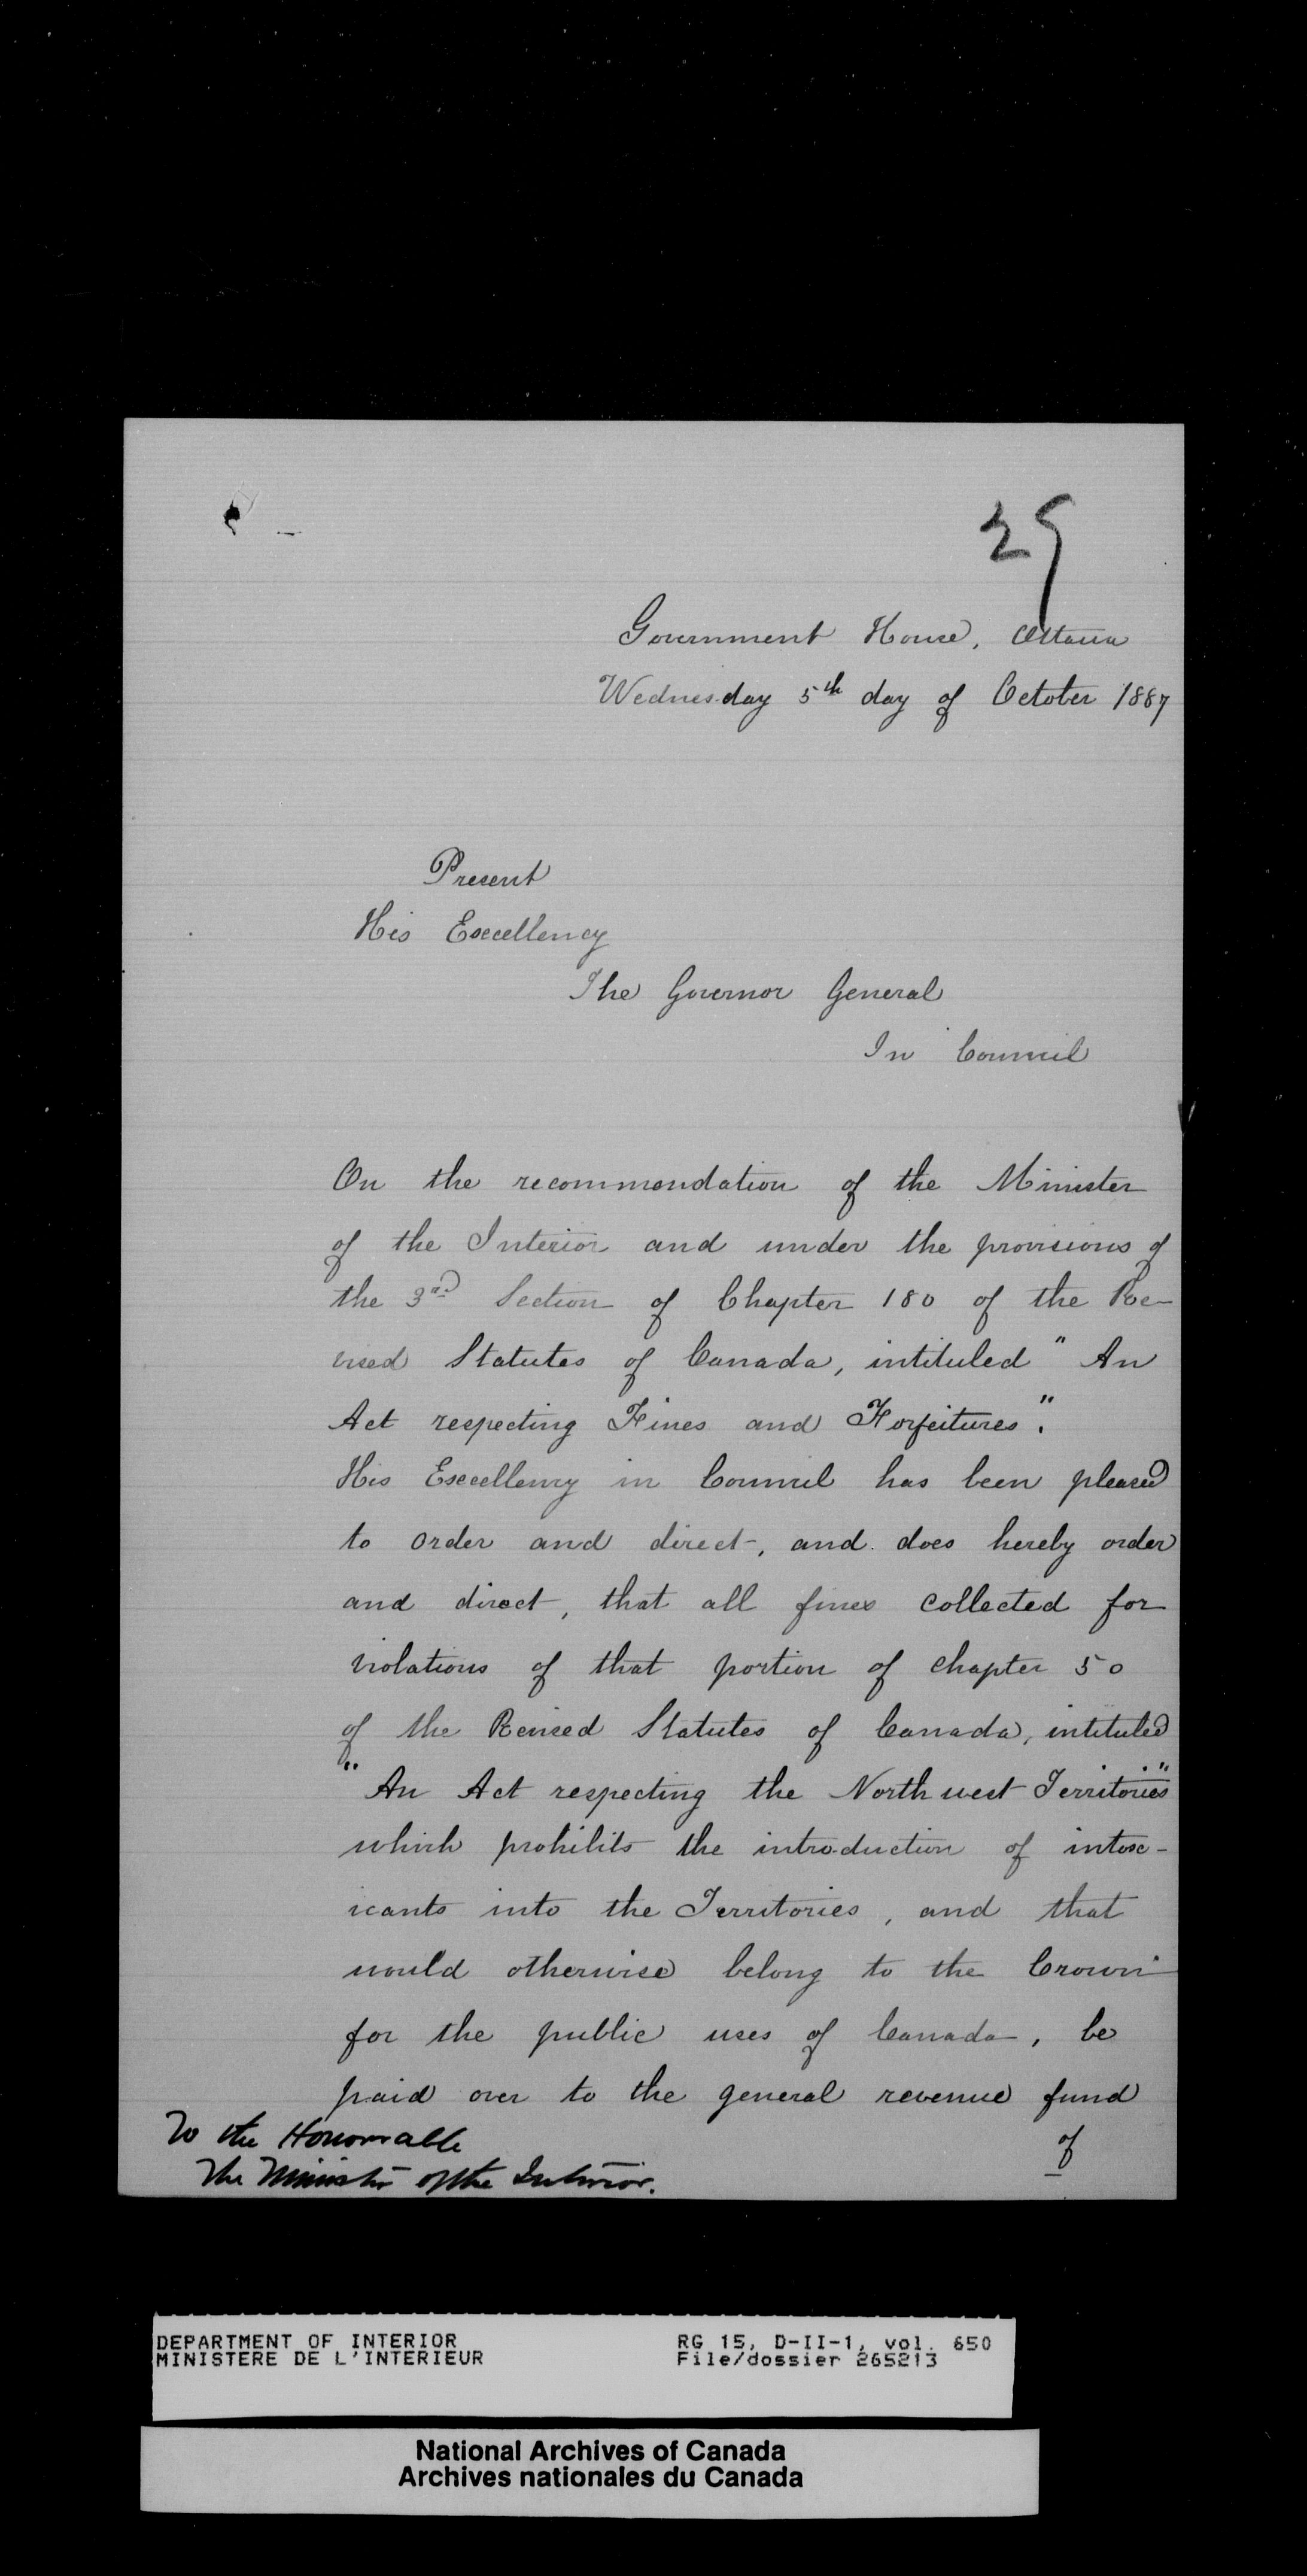 29
Government House, Ottawa
Wednesday 5th day of October 1887
Present
His Excellency
The Governor General
In Council
On the recommendation of the Minister
of the Interior and under the provisions of
the 3rd Section of Chapter 180 of the Re-
vised Statutes of Canada, intituled "An
Act respecting Fines and Forfeitures".
His Excellency in Council has been pleased
to order and direct, and does hereby order
and direct, that all fines collected for
violations of that portion of chapter 50
of the Revised Statutes of Canada, intituled
"An Act respecting the North west Territories"
which prohibits the introduction of intox-
icants into the Territories, and that
would otherwise belong to the Crown
for the public uses of Canada, be
paid over to the general revenue fund
of
To the Honourable
The Minister of the Interior.
DEPARTMENT OF INTERIOR RG 15, D-II-1, vol. 650
MINISTERE DE L'INTERIEUR File/dossier 265213
National Archives of Canada
Archives nationales du Canada